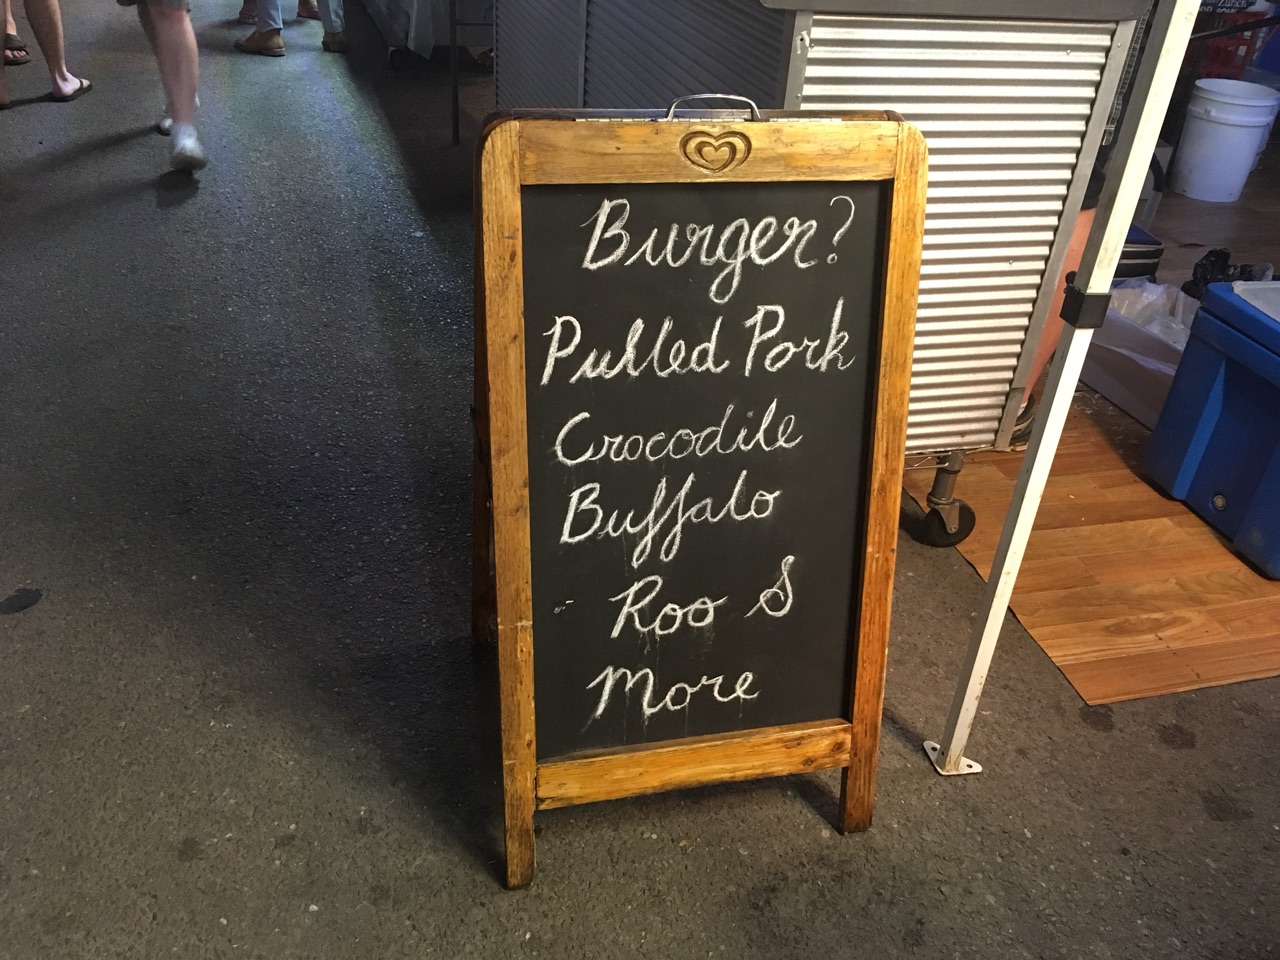 Burger?
Pulled Pork
Crocodile
Buffalo
Roo &
More